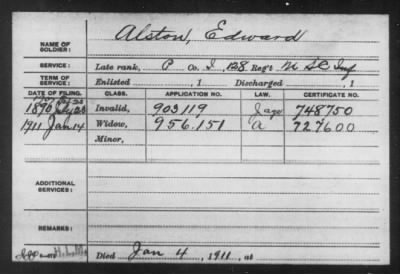 Alston, Edward
NAME OF SOLDIER:
SERVICE: Late rank, P Co. I, 128 Reg't U S C Inf
TERM OF SERVICE: Enlisted , 1 Discharged , 1
DATE OF FILING. CLASS. APPLICATION NO. LAW. CERTIFICATE NO.
1890 Invalid, 903119 748750
1911 Jan 14 Widow, 956.151 A 727600
Minor,
ADDITIONAL SERVICES:
REMARKS:
Died Jan 4, 1911, at